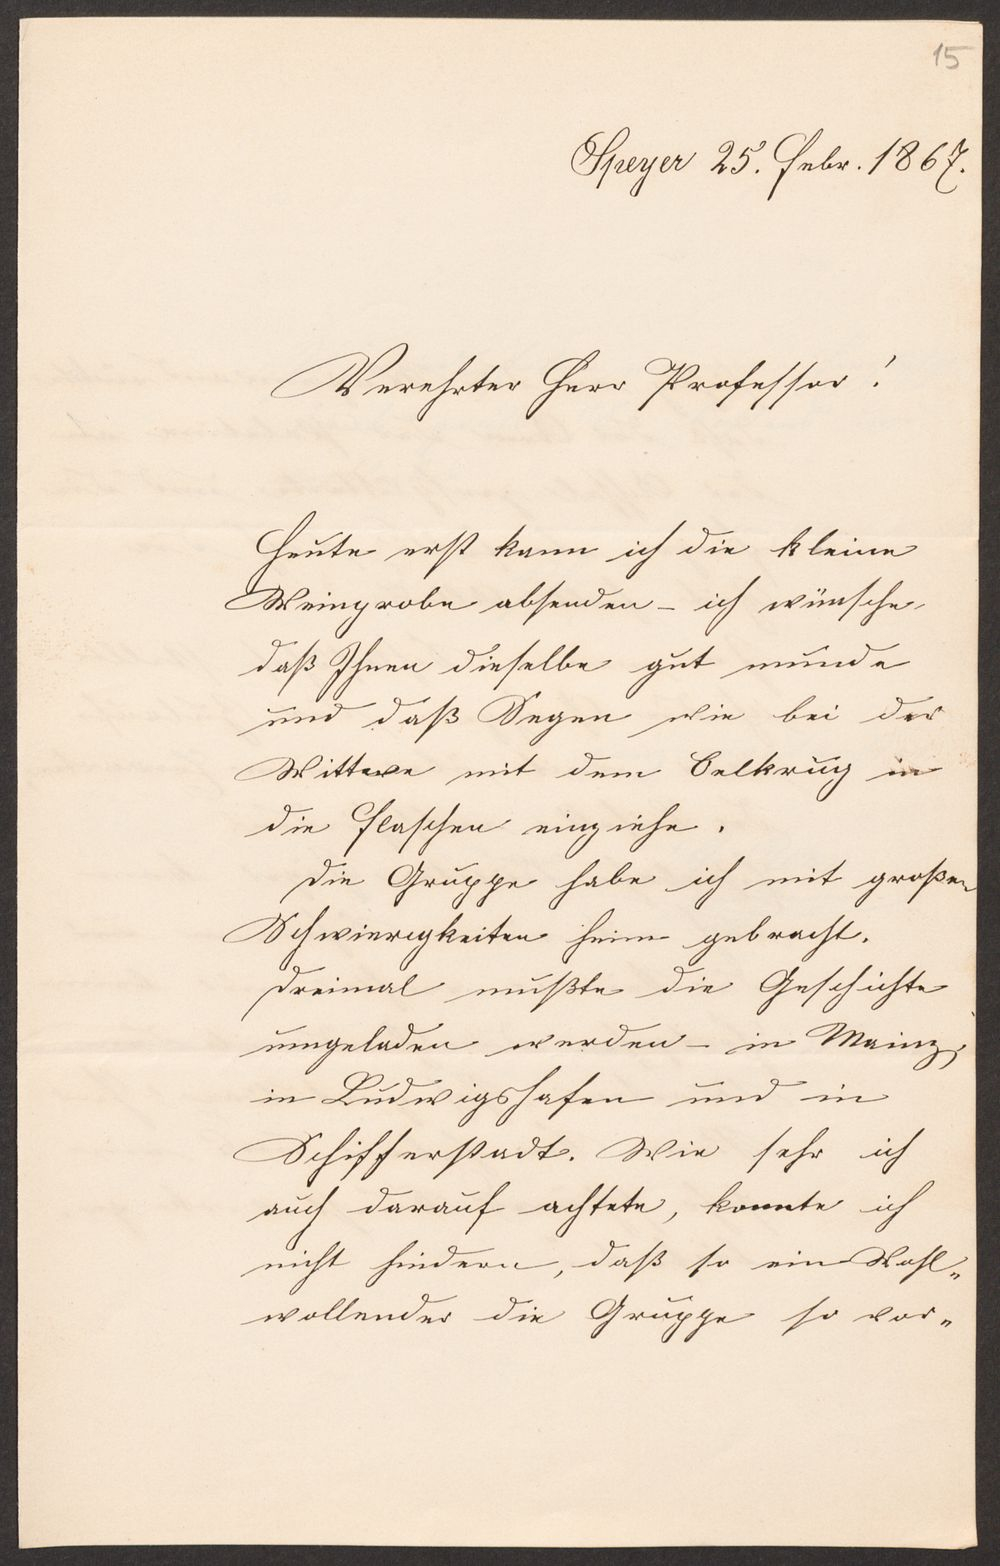 15
Speyer 25. Febr. 1867.
Verehrter Herr Professor!
Heute erst kann ich die kleine
Weinprobe absenden – ich wünsche,
daß Ihnen dieselbe gut munde
und daß Segen wie bei der
Wittwe mit dem Oelkrug in
die Flaschen einziehe.
Die Gruppe habe ich mit großen
Schwierigkeiten heim gebracht.
Dreimal mußte die Geschichte
umgeladen werden – in Mainz,
in Ludwigshafen und in
Schifferstadt. Wie sehr ich
auch darauf achtete, konnte ich
nicht hindern, daß so ein Wohl„
wollender die Gruppe so vor„